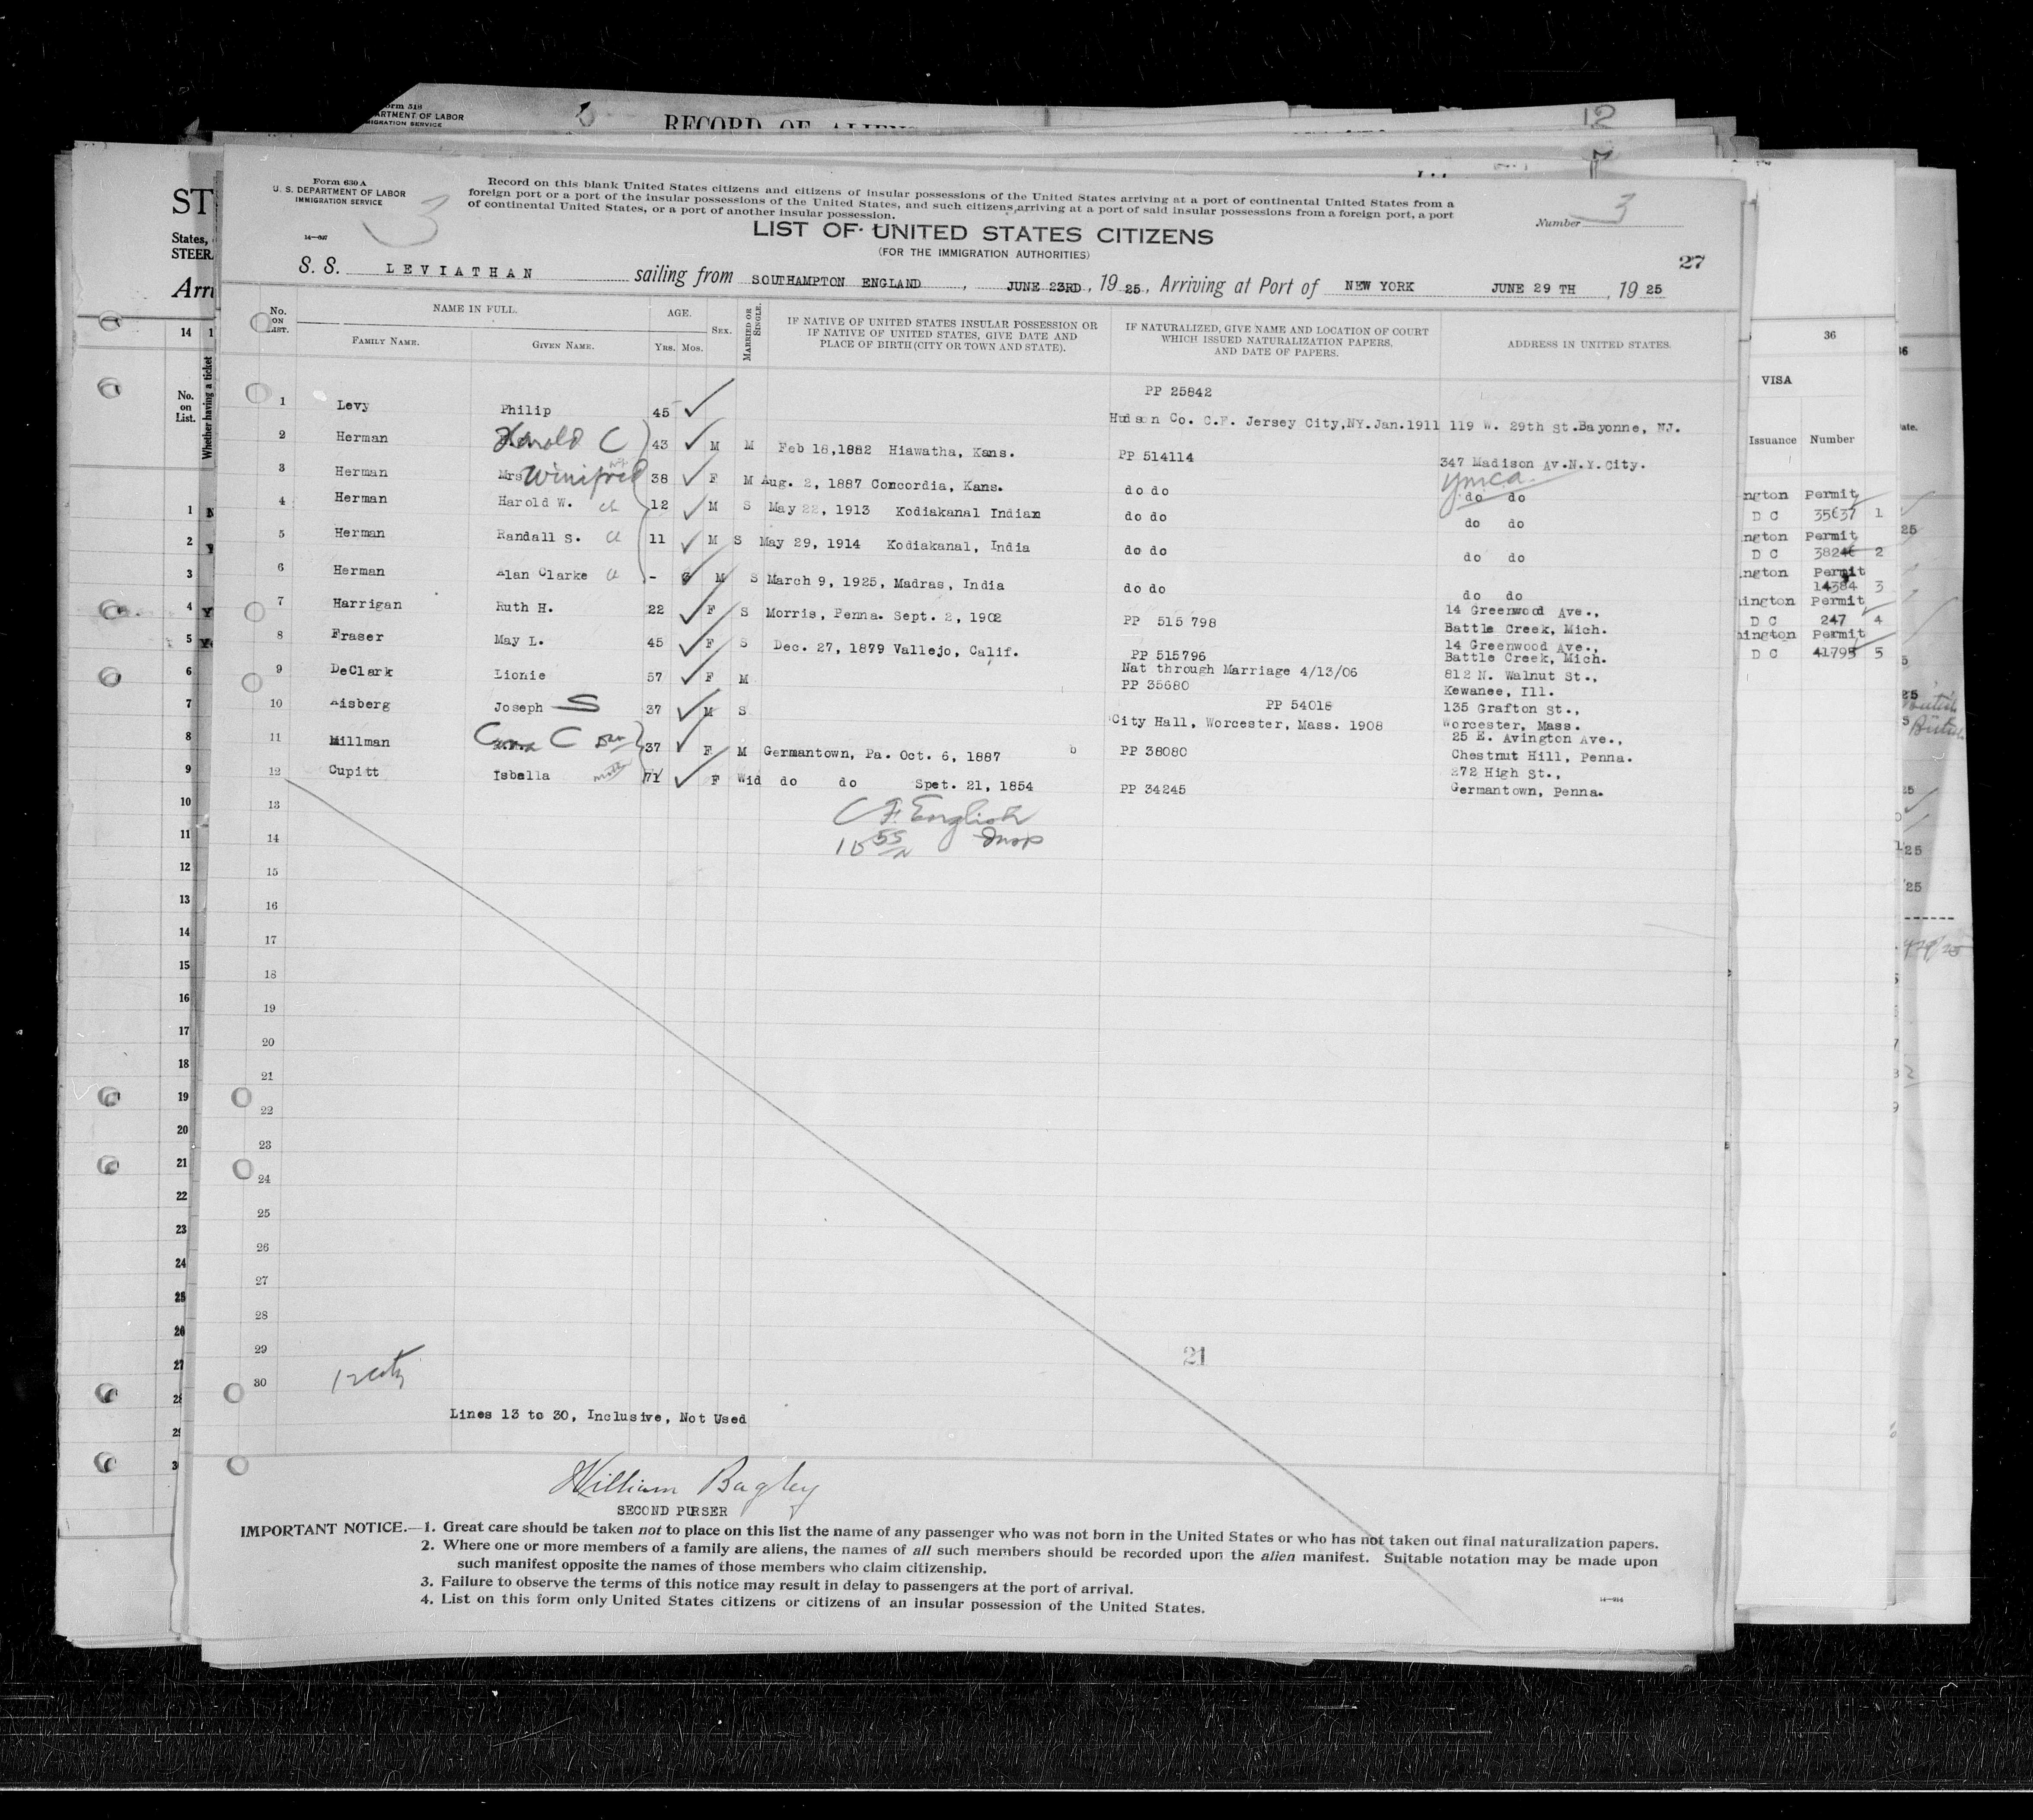 Form 518
DEPARTMENT OF LABOR
IMMIGRATION SERVICE
RECORD OF ALIENS
12
Form 630 A
U. S. DEPARTMENT OF LABOR
IMMIGRATION SERVICE
14—627
3
Record on this blank United States citizens and citizens of insular possessions of the United States arriving at a port of continental United States from a
foreign port or a port of the insular possessions of the United States, and such citizens arriving at a port of said insular possessions from a foreign port, a port
of continental United States, or a port of another insular possession.
Number 3
LIST OF UNITED STATES CITIZENS
(FOR THE IMMIGRATION AUTHORITIES)
27
S. S. LEVIATHAN sailing from SOUTHAMPTON ENGLAND, JUNE 23RD, 1925, Arriving at Port of NEW YORK JUNE 29 TH, 1925
No. ON LIST. NAME IN FULL. FAMILY NAME. GIVEN NAME. AGE. YRS. MOS. SEX. MARRIED OR SINGLE.
IF NATIVE OF UNITED STATES INSULAR POSSESSION OR
IF NATIVE OF UNITED STATES, GIVE DATE AND
PLACE OF BIRTH (CITY OR TOWN AND STATE).
IF NATURALIZED, GIVE NAME AND LOCATION OF COURT
WHICH ISSUED NATURALIZATION PAPERS,
AND DATE OF PAPERS.
ADDRESS IN UNITED STATES.
PP 25842
1 Levy Philip 45 Hudson Co. C.P. Jersey City,NY.Jan.1911 119 W. 29th St.Bayonne, NJ.
2 Herman Harold C 43 M M Feb 18,1882 Hiawatha, Kans. PP 514114 347 Madison Av.N.Y.City.
YMCA
3 Herman Mrs Winifred 38 F M Aug. 2, 1887 Concordia, Kans. do do do do
4 Herman Harold W. ch 12 M S May 22, 1913 Kodiakanal Indian do do do do
5 Herman Randall S. ch 11 M S May 29, 1914 Kodiakanal, India do do do do
6 Herman Alan Clarke ch - 3 M S March 9, 1925, Madras, India do do do do
7 Harrigan Ruth H. 22 F S Morris, Penna. Sept. 2, 1902 PP 515 798 14 Greenwood Ave.,
Battle Creek, Mich.
8 Fraser May L. 45 F S Dec. 27, 1879 Vallejo, Calif. PP 515796 14 Greenwood Ave.,
Battle Creek, Mich.
9 DeClark Lionie 57 F M Nat through Marriage 4/13/06 812 N. Walnut St.,
PP 35680 Kewanee, Ill.
10 Aisberg Joseph S 37 M S PP 54018 135 Grafton St.,
City Hall, Worcester, Mass. 1908 Worcester, Mass.
11 Millman C 37 F M Germantown, Pa. Oct. 6, 1887 b PP 38080 25 E. Avington Ave.,
Chestnut Hill, Penna.
12 Cupitt Isbella mother 71 F Wid do do Spet. 21, 1854 PP 34245 272 High St.,
Germantown, Penna.
C F. English
10 55 a Insp
13
14
15
16
17
18
19
20
21
22
23
24
25
26
27
28
29
30
21
12 cits
Lines 13 to 30, Inclusive, Not Used
William Bagley
SECOND PURSER
IMPORTANT NOTICE.—1. Great care should be taken not to place on this list the name of any passenger who was not born in the United States or who has not taken out final naturalization papers.
2. Where one or more members of a family are aliens, the names of all such members should be recorded upon the alien manifest. Suitable notation may be made upon
such manifest opposite the names of those members who claim citizenship.
3. Failure to observe the terms of this notice may result in delay to passengers at the port of arrival.
4. List on this form only United States citizens or citizens of an insular possession of the United States.
States,
STEER
14
No.
on
List.
Whether having a ticket
1
2
3
4
5
6
7
8
9
10
11
12
13
14
15
16
17
18
19
20
21
22
23
24
25
26
27
36
VISA
Issuance Number
Permit
D C 35637 1
Permit
D C 38246 2
Permit
14384 3
Permit
D C 247 4
Permit
D C 41795 5